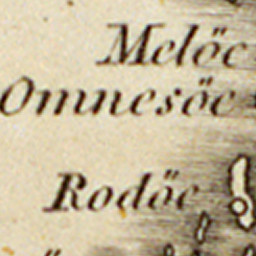 Melöe
Omnesöe
Rodöe